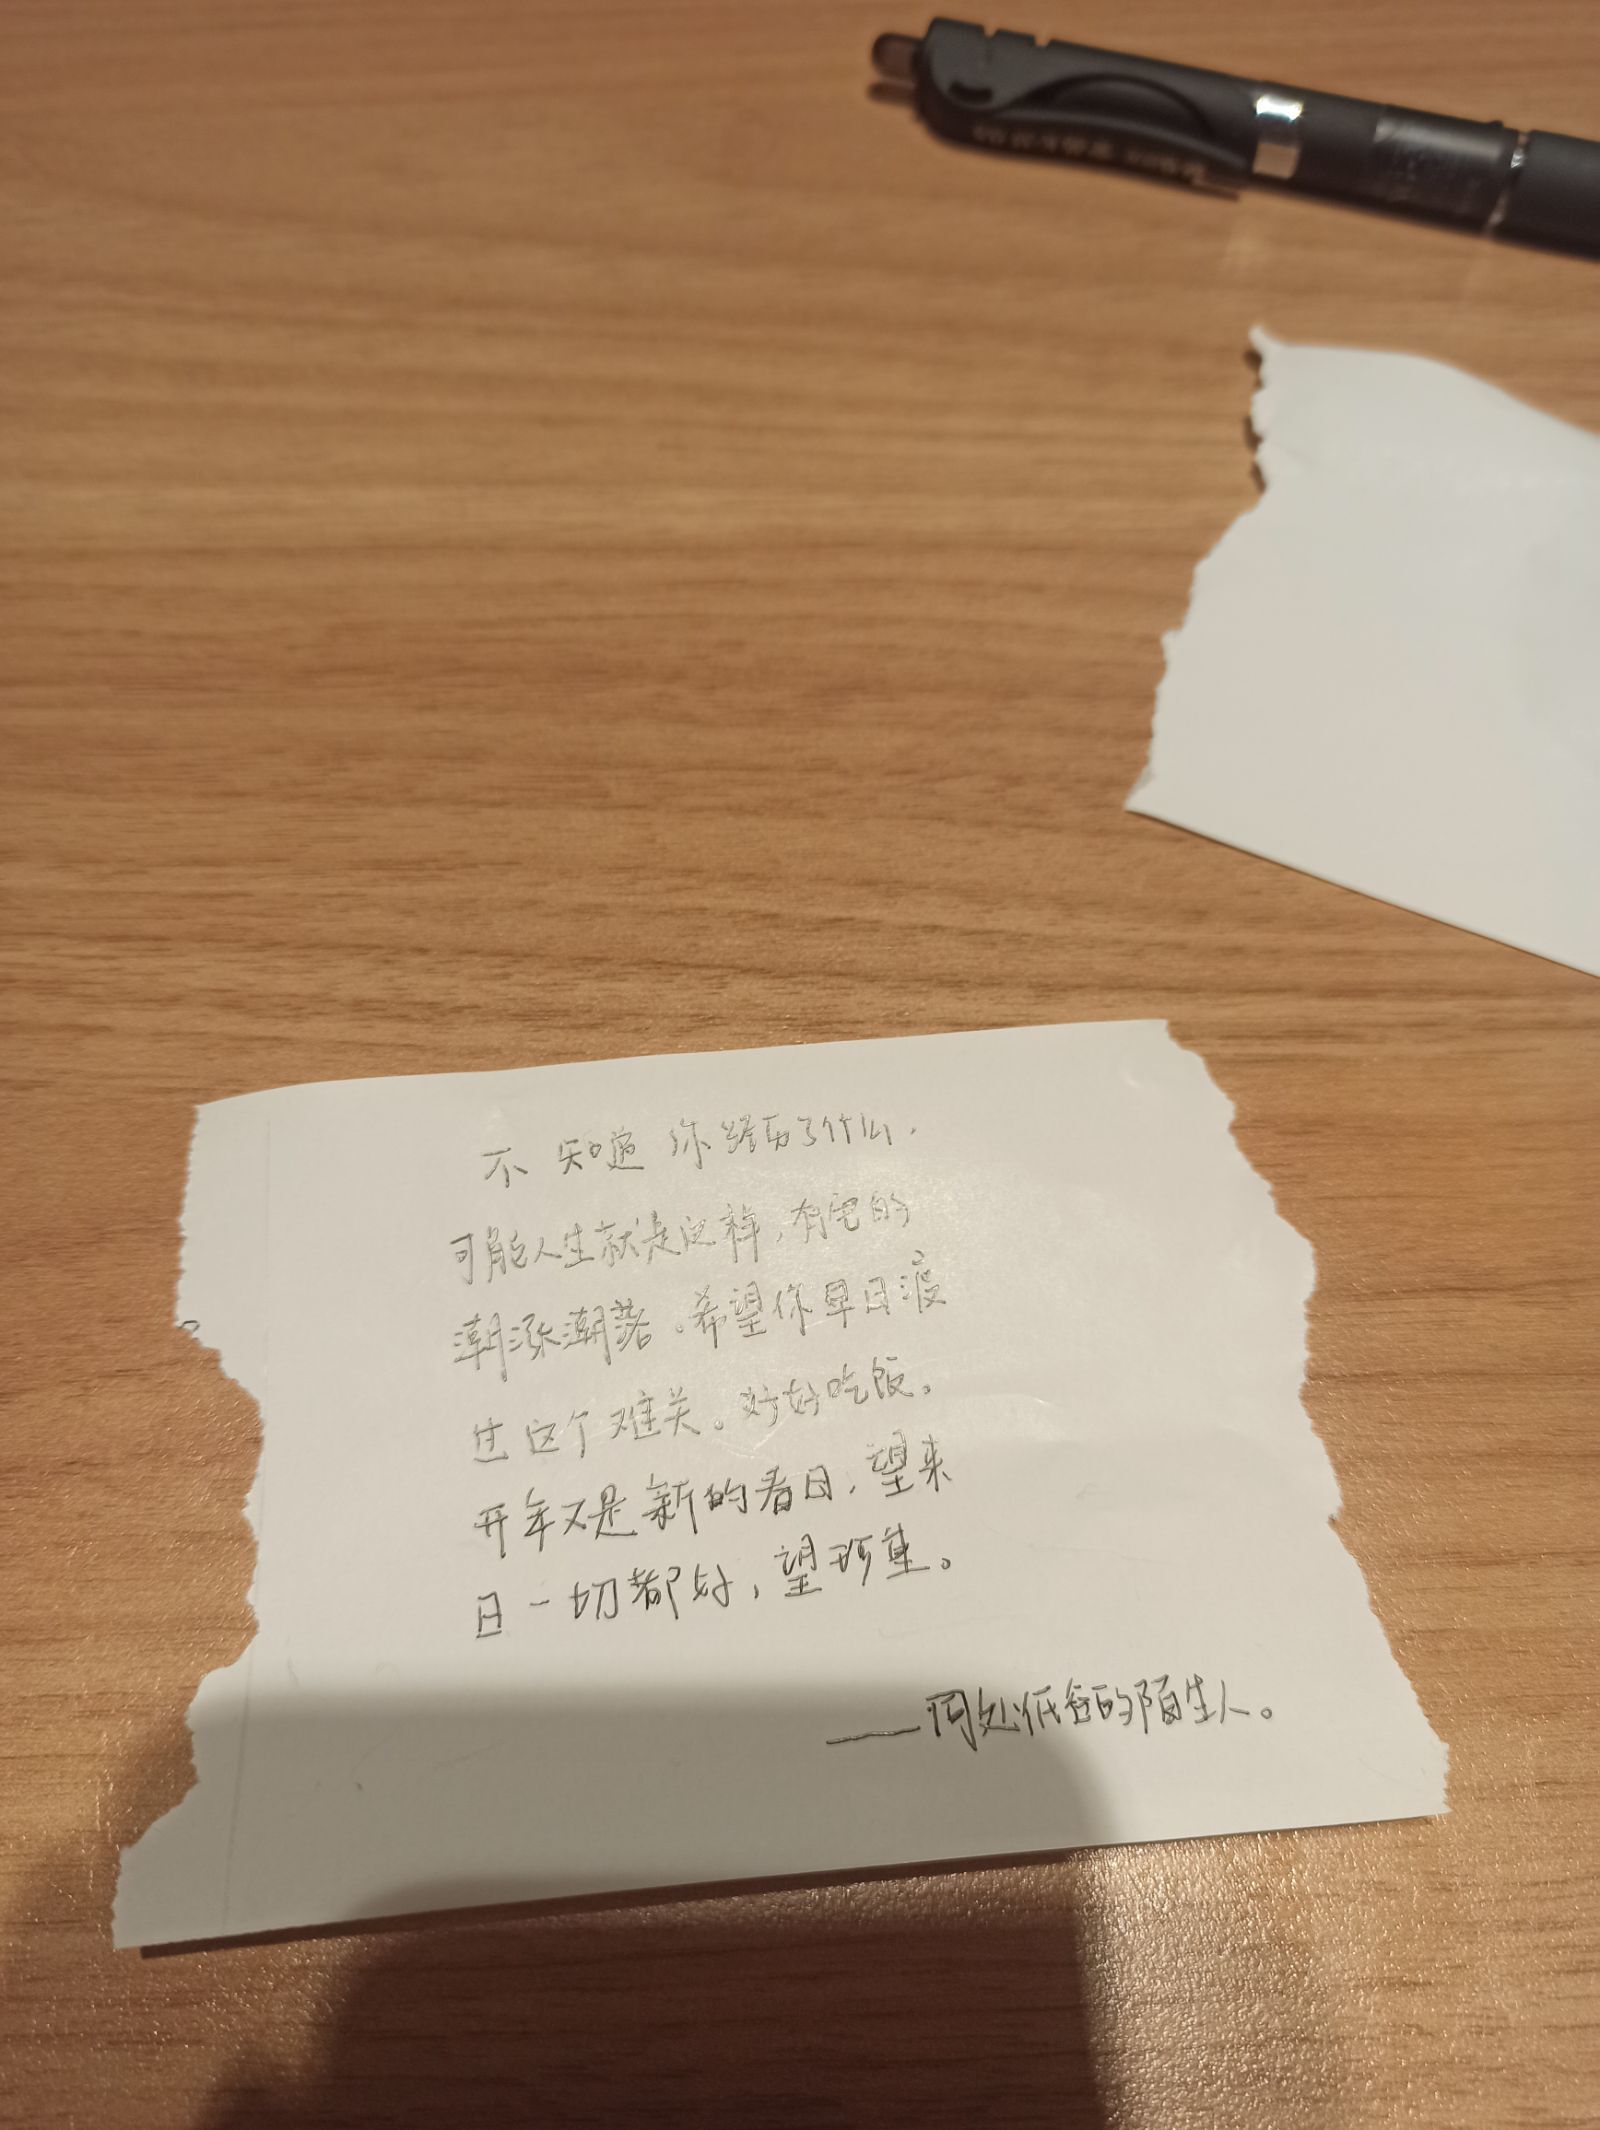 不知道你经历了什么.
可能人生就是这样,有它的
潮涨潮落。希望你早日渡
过这个难关。好好吃饭。
开年又是新的春日,望来
日一切都好,望珍重。
——同处低谷的陌生人。